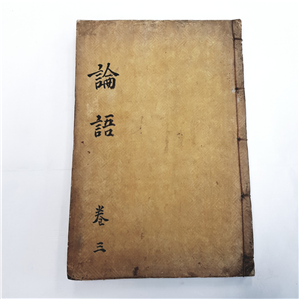 論語
卷三